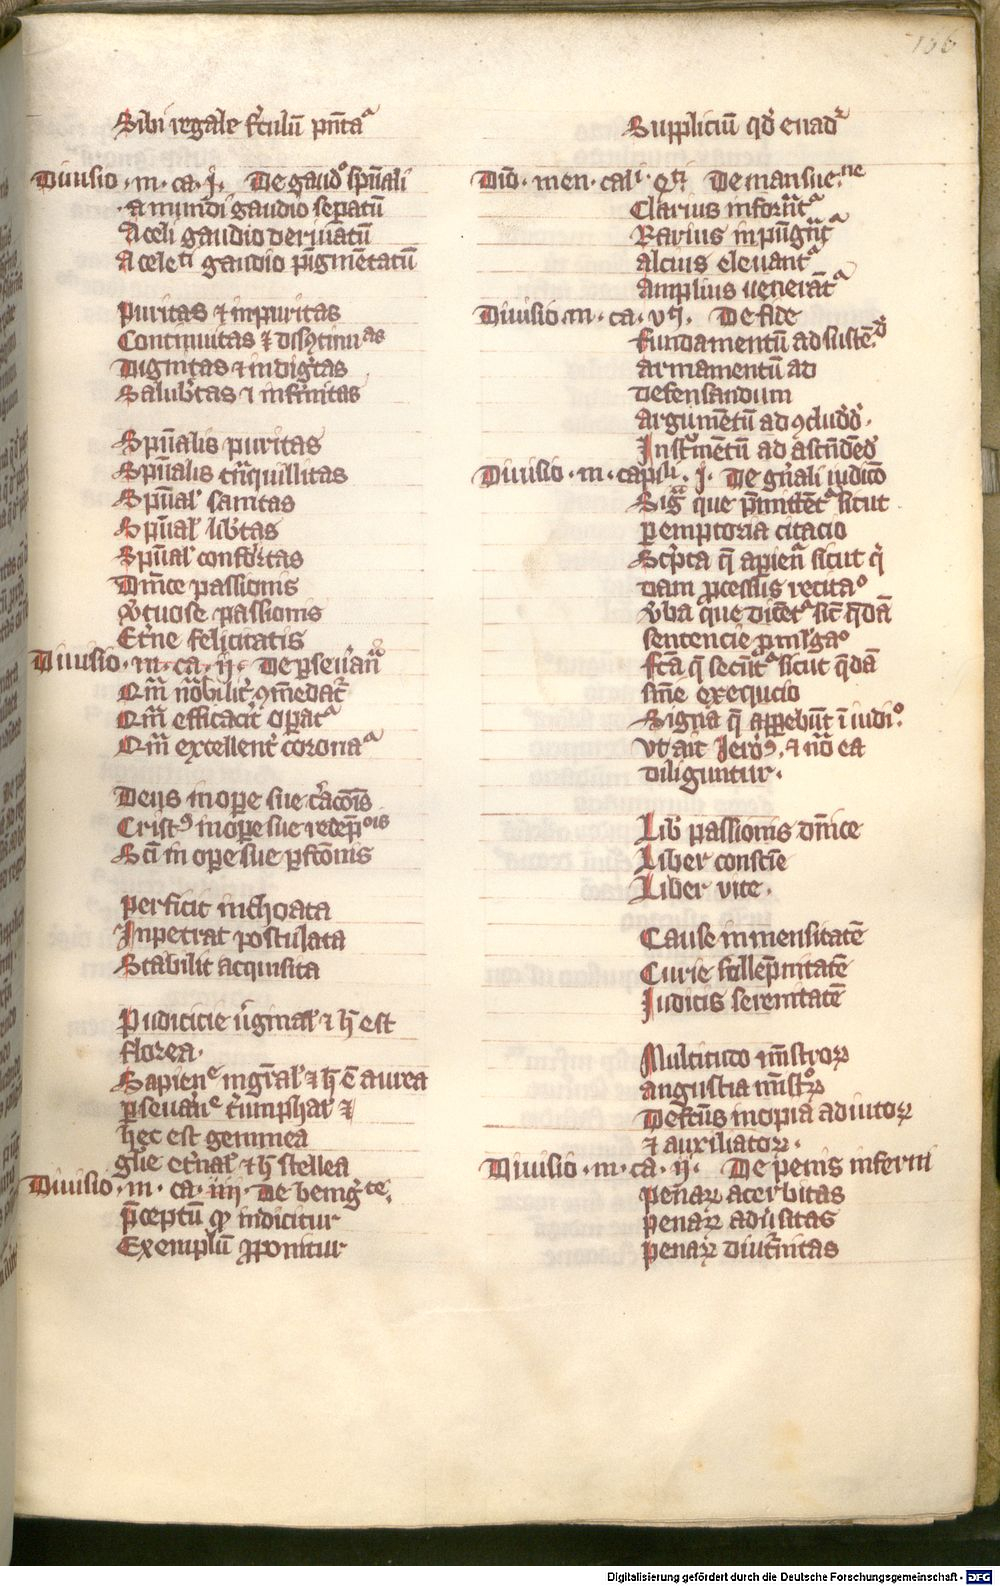 106
Sibi regale f̄culū p̄nta͛
Diuisio · m · ca · j · De gaud͛o sp̄uali
· a mundi gaudio sepatū
A celi gaudio deriuatū
A celeti gaudio pigmētatū
Puritas ⁊ inpuritas
Continuitas ⁊ disꝯtinuas
Dignitas ⁊ indigtas
Salubtas ⁊ infirmitas
Sp̄ualis puritas
Sp̄ualis tn̄quillitas
Sp̄ual sanitas
Sp̄ual libtas
Sp̄ual confortas
Dnīce passionis
Vtuose passionis
Et͛ne felicitatis
Diuisio · m · ca · ij · De pseuan͛
Qm̄ nobilit͛ ꝯmēdat͛
Qm̄ efficacit͛ opat͛
Qm̄ excellent͛ corona͛
Deus in ope sue c͛acōis
Crist⁹ in ope sue redēp̄ois
Sc̄i in ope sue pfc̄ōnis
Perficit inchoata
Inpetrat postulata
Stabilit acquisita
Pudicicie v͛ginal ⁊ h̄ est
florea ·
Sapien͛ mg͛al ⁊ h̄ ē aurea
pseuan͛ t͛umphal ⁊
hec est gemmea
glie et͛nal ⁊ h̄ stellea
Diuisio · m · ca · iiij · De benig͛te ·
p̄ceptū qͦ indicitur
Exemplū ꝓponitur
Suppliciū qd̄ euad͛
Diō · men · cali · qͬti De mansue · ne
Clarius inforn̄t͛
Rarius inpūgn̄t͛
alcius eleuant͛
Amplius uenerāt͛
Diuisio · m · ca · vti · De fide
fundamentū ad sustēd͛
armamentū ad
defensandum
argumētū ad ꝯcludd͛o ·
Instūmētū ad ascn̄dēd͛
Diuisio · m · capli · j · De gn̄ali iudicō
Sig͛ que p̄mittēt͛ sicut
pemptoria citacio
Scp̄ta q̄ apien͛ sicut q͛
dam ꝓcessus recitaº
v͛ba que dicēt͛ sic̄ qdā
sentencie ꝓmlgaº
fc̄a q̄ secūt͛ sicut qdā
sn̄ie exequcio
Signa q̄ apꝑebūt ī iudiº ·
vt ait Jero⁹ · ⁊ nō ea
diliguntur ·
Lib͛ passionis dn̄ice
Liber consciē
Liber vite ·
Cause inmensitatē
Curie sollēpnitatē
Judicis serenitatē
Multitudo mīstroꝝ
angustia mīstoꝝ
Defctūs inopia adiutoꝝ
⁊ auxiliatoꝝ ·
Diuisio · m · ca · ij · De penis inferni
penaꝝ acerbitas
penaꝝ adūsitas
penaꝝ diut͛nitas
Digitalisierung gefördert durch die Deutsche Forschungsgemeinschaft - DFG